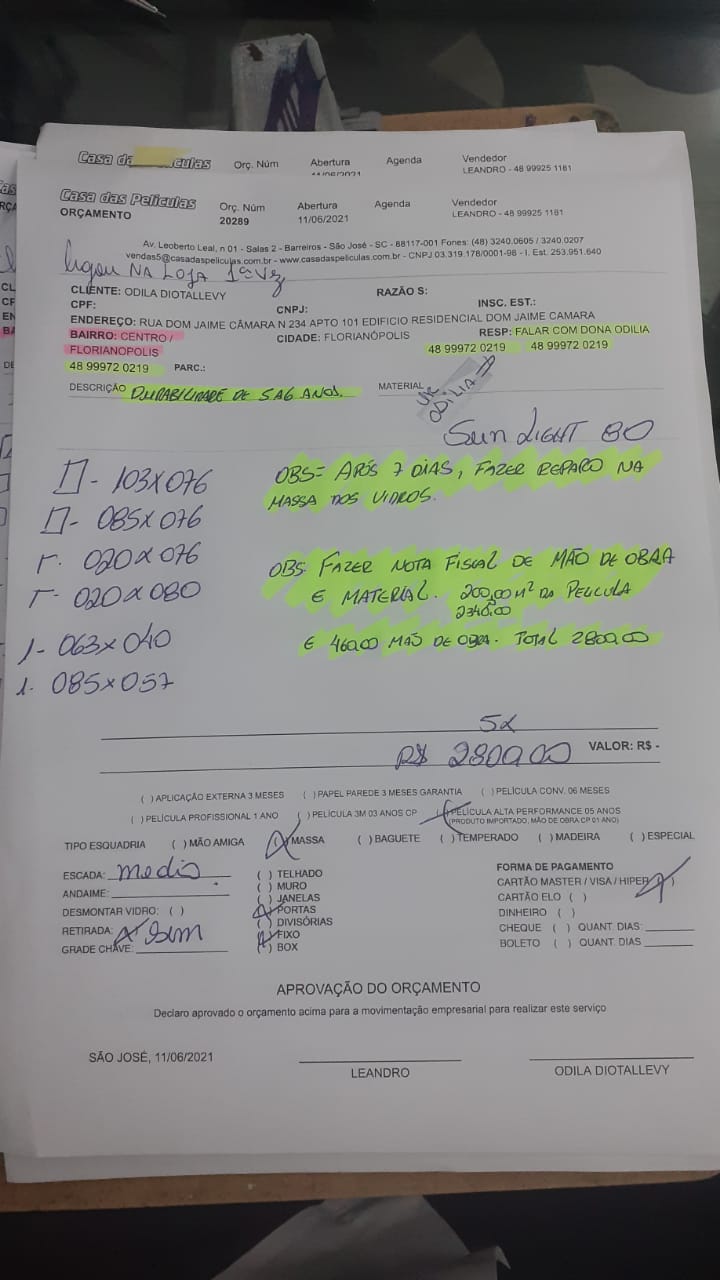 Casa da culas Orç. Núm Abertura Agenda Vendedor
11/06/2021 LEANDRO - 48 99925 1161
Casa das Películas Orç. Núm Abertura Agenda Vendedor
ORÇAMENTO 20289 11/06/2021 LEANDRO - 48 99925 1161
Av. Leoberto Leal, n 01 - Salas 2 - Barreiros - São José - SC - 88117-001 Fones: (48) 3240.0605 / 3240.0207
vendas5@casadaspeliculas.com.br - www.casadaspeliculas.com.br - CNPJ 03.319.178/0001-98 - I. Est. 253.951.640
ligou NA LOJA 1ª vez
CLIENTE: ODILA DIOTALLEVY RAZÃO S:
CPF: CNPJ: INSC. EST.:
ENDEREÇO: RUA DOM JAIME CÂMARA N 234 APTO 101 EDIFICIO RESIDENCIAL DOM JAIME CAMARA
BAIRRO: CENTRO / CIDADE: FLORIANÓPOLIS RESP: FALAR COM DONA ODILIA
FLORIANOPOLIS 48 99972 0219 48 99972 0219
48 99972 0219 PARC.:
DESCRIÇÃO DURABILIDADE DE 5 A 6 ANOS. MATERIAL
ODILIA
Sun LIGHT 80
103X076
085X076
020X076
020X080
1- 063X040
1. 085X057
OBS= APÓS 7 DIAS, FAZER REPARO NA
MASSA DOS VIDROS.
OBS: FAZER NOTA FISCAL DE MÃO DE OBRA
E MATERIAL. 200,00 M² DA PELICULA
2340,00
E 460,00 MÃO DE OBRA. TOTAL 2800,00
5X
R$ 2800,00 VALOR: R$ -
( ) APLICAÇÃO EXTERNA 3 MESES ( ) PAPEL PAREDE 3 MESES GARANTIA ( ) PELÍCULA CONV. 06 MESES
( ) PELÍCULA PROFISSIONAL 1 ANO ( ) PELÍCULA 3M 03 ANOS CP (X) PELÍCULA ALTA PERFORMANCE 05 ANOS
(PRODUTO IMPORTADO, MÃO DE OBRA CP 01 ANO)
TIPO ESQUADRIA ( ) MÃO AMIGA (X) MASSA ( ) BAGUETE ( ) TEMPERADO ( ) MADEIRA ( ) ESPECIAL
ESCADA: medio
ANDAIME:
DESMONTAR VIDRO: ( )
RETIRADA: X Sim
GRADE CHAVE:
( ) TELHADO
( ) MURO
( ) JANELAS
(X) PORTAS
( ) DIVISÓRIAS
(X) FIXO
( ) BOX
FORMA DE PAGAMENTO
CARTÃO MASTER / VISA / HIPER (X)
CARTÃO ELO ( )
DINHEIRO ( )
CHEQUE ( ) QUANT. DIAS:
BOLETO ( ) QUANT. DIAS
APROVAÇÃO DO ORÇAMENTO
Declaro aprovado o orçamento acima para a movimentação empresarial para realizar este serviço
SÃO JOSÉ, 11/06/2021
LEANDRO ODILA DIOTALLEVY